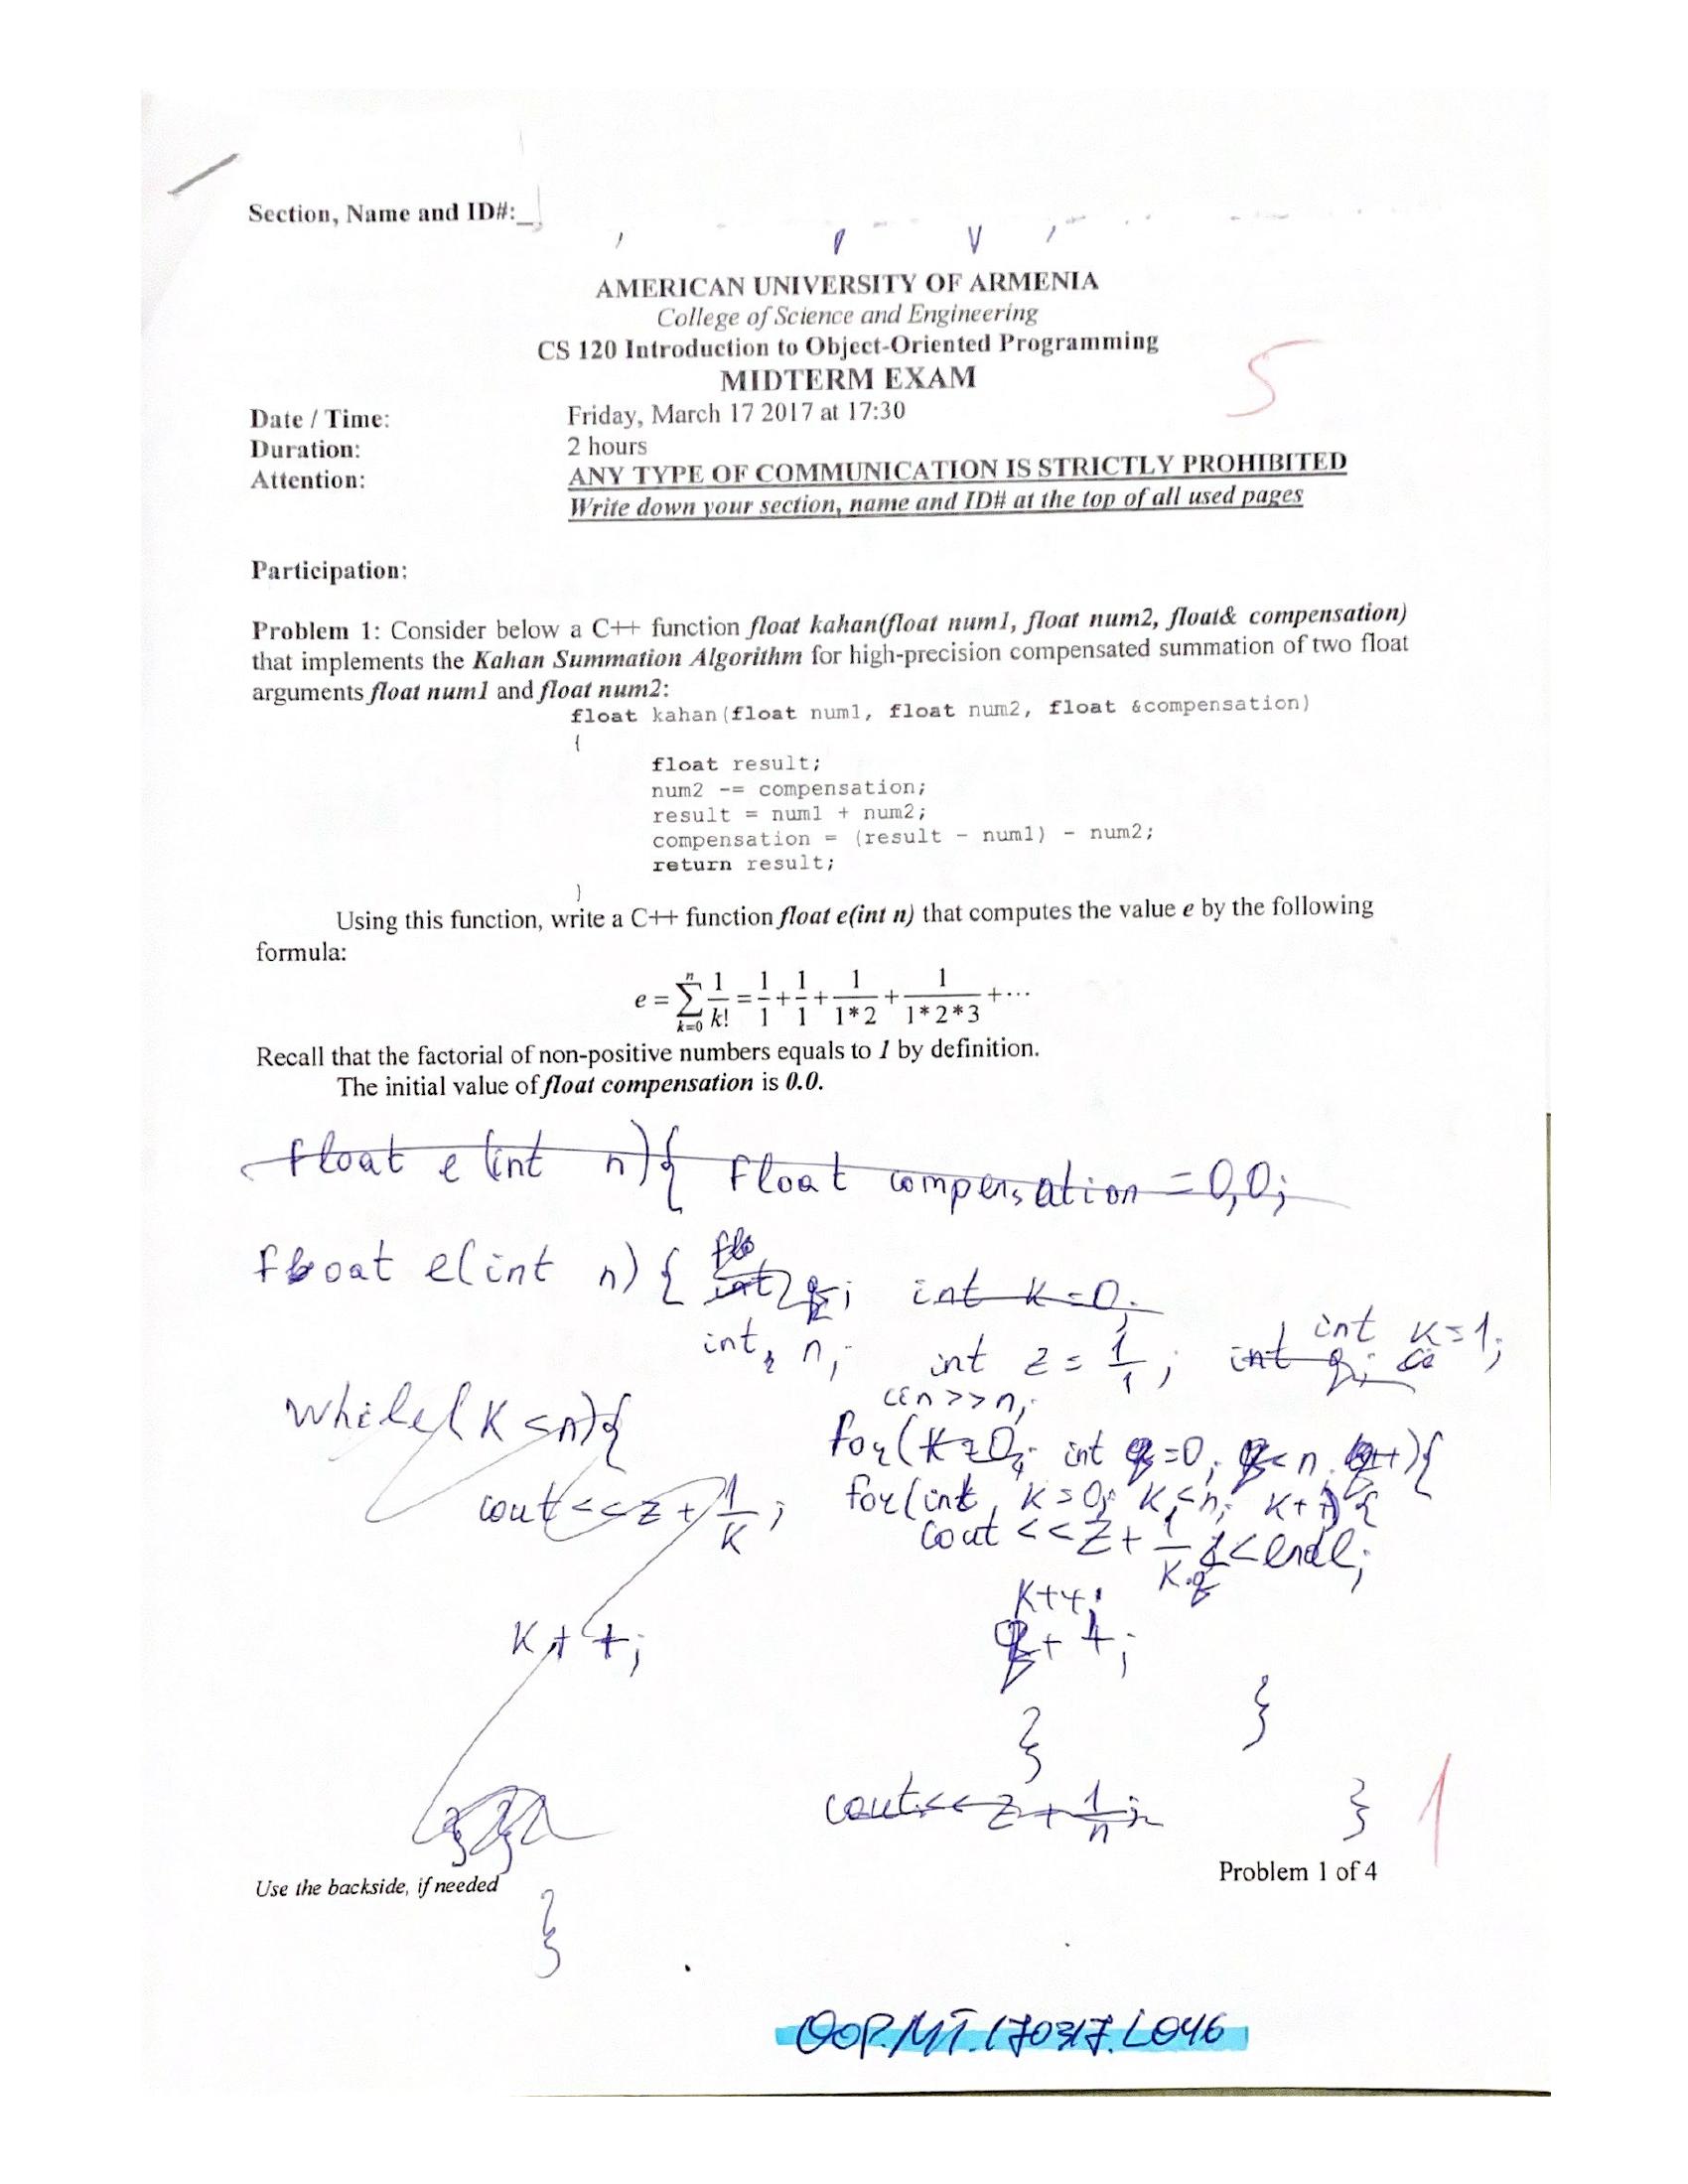 Section, Name and ID#:_
AMERICAN UNIVERSITY OF ARMENIA
College of Science and Engineering
CS 120 Introduction to Object-Oriented Programming
MIDTERM EXAM
5
Date / Time: Friday, March 17 2017 at 17:30
Duration: 2 hours
Attention: ANY TYPE OF COMMUNICATION IS STRICTLY PROHIBITED
Write down your section, name and ID# at the top of all used pages
Participation:
Problem 1: Consider below a C++ function float kahan(float num1, float num2, float& compensation)
that implements the Kahan Summation Algorithm for high-precision compensated summation of two float
arguments float num1 and float num2:
float kahan(float num1, float num2, float &compensation)
{
float result;
num2 -= compensation;
result = num1 + num2;
compensation = (result - num1) - num2;
return result;
}
Using this function, write a C++ function float e(int n) that computes the value e by the following
formula:
e = ∑_{k=0}^{n} 1/k! = 1/1 + 1/1 + 1/(1*2) + 1/(1*2*3) + ⋯
Recall that the factorial of non-positive numbers equals to 1 by definition.
The initial value of float compensation is 0.0.
float e(int n){ float compensation = 0,0;
float e(int n) { int k=0;
int n; int z = 1/1; int k=1;
cin>>n;
while(k<n){
for(k=0; int q=0; q<n; q++){
cout<<z+1/k; for(int k=0; k<n; k++){
cout<<z+1/k.q<<endl;
k++;
k++; q++;
}
}
cout<<z+1/n; }
1
Use the backside, if needed Problem 1 of 4
}
OOP.MT.170317.L046